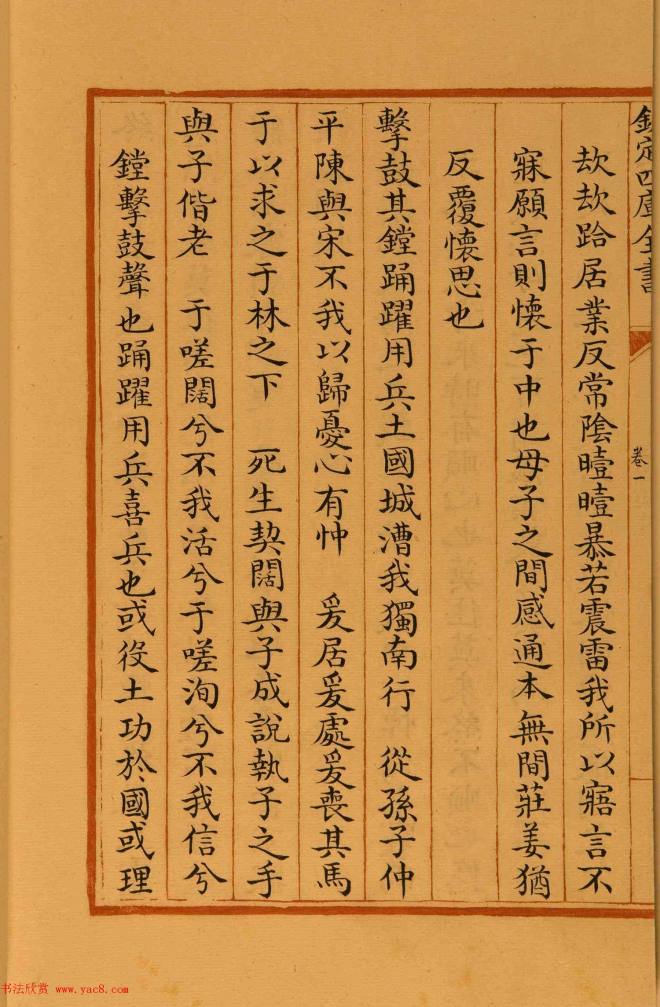 欽定四庫全書
卷一
欬欬跲居業反常陰曀曀暴若震雷我所以寤言不
寐願言則懷于中也母子之間感通本無間莊姜猶
反覆懷思也
擊鼓其鏜踊躍用兵土國城漕我獨南行 從孫子仲
平陳與宋不我以歸憂心有忡 爰居爰處爰喪其馬
于以求之于林之下 死生契闊與子成說執子之手
與子偕老 于嗟闊兮不我活兮于嗟洵兮不我信兮
鏜擊鼓聲也踊躍用兵喜兵也或役土功於國或理
书法欣赏 www.yac8.com